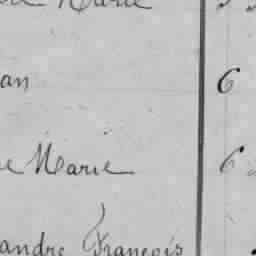 Marie
an 6
e Marie 6
andre François